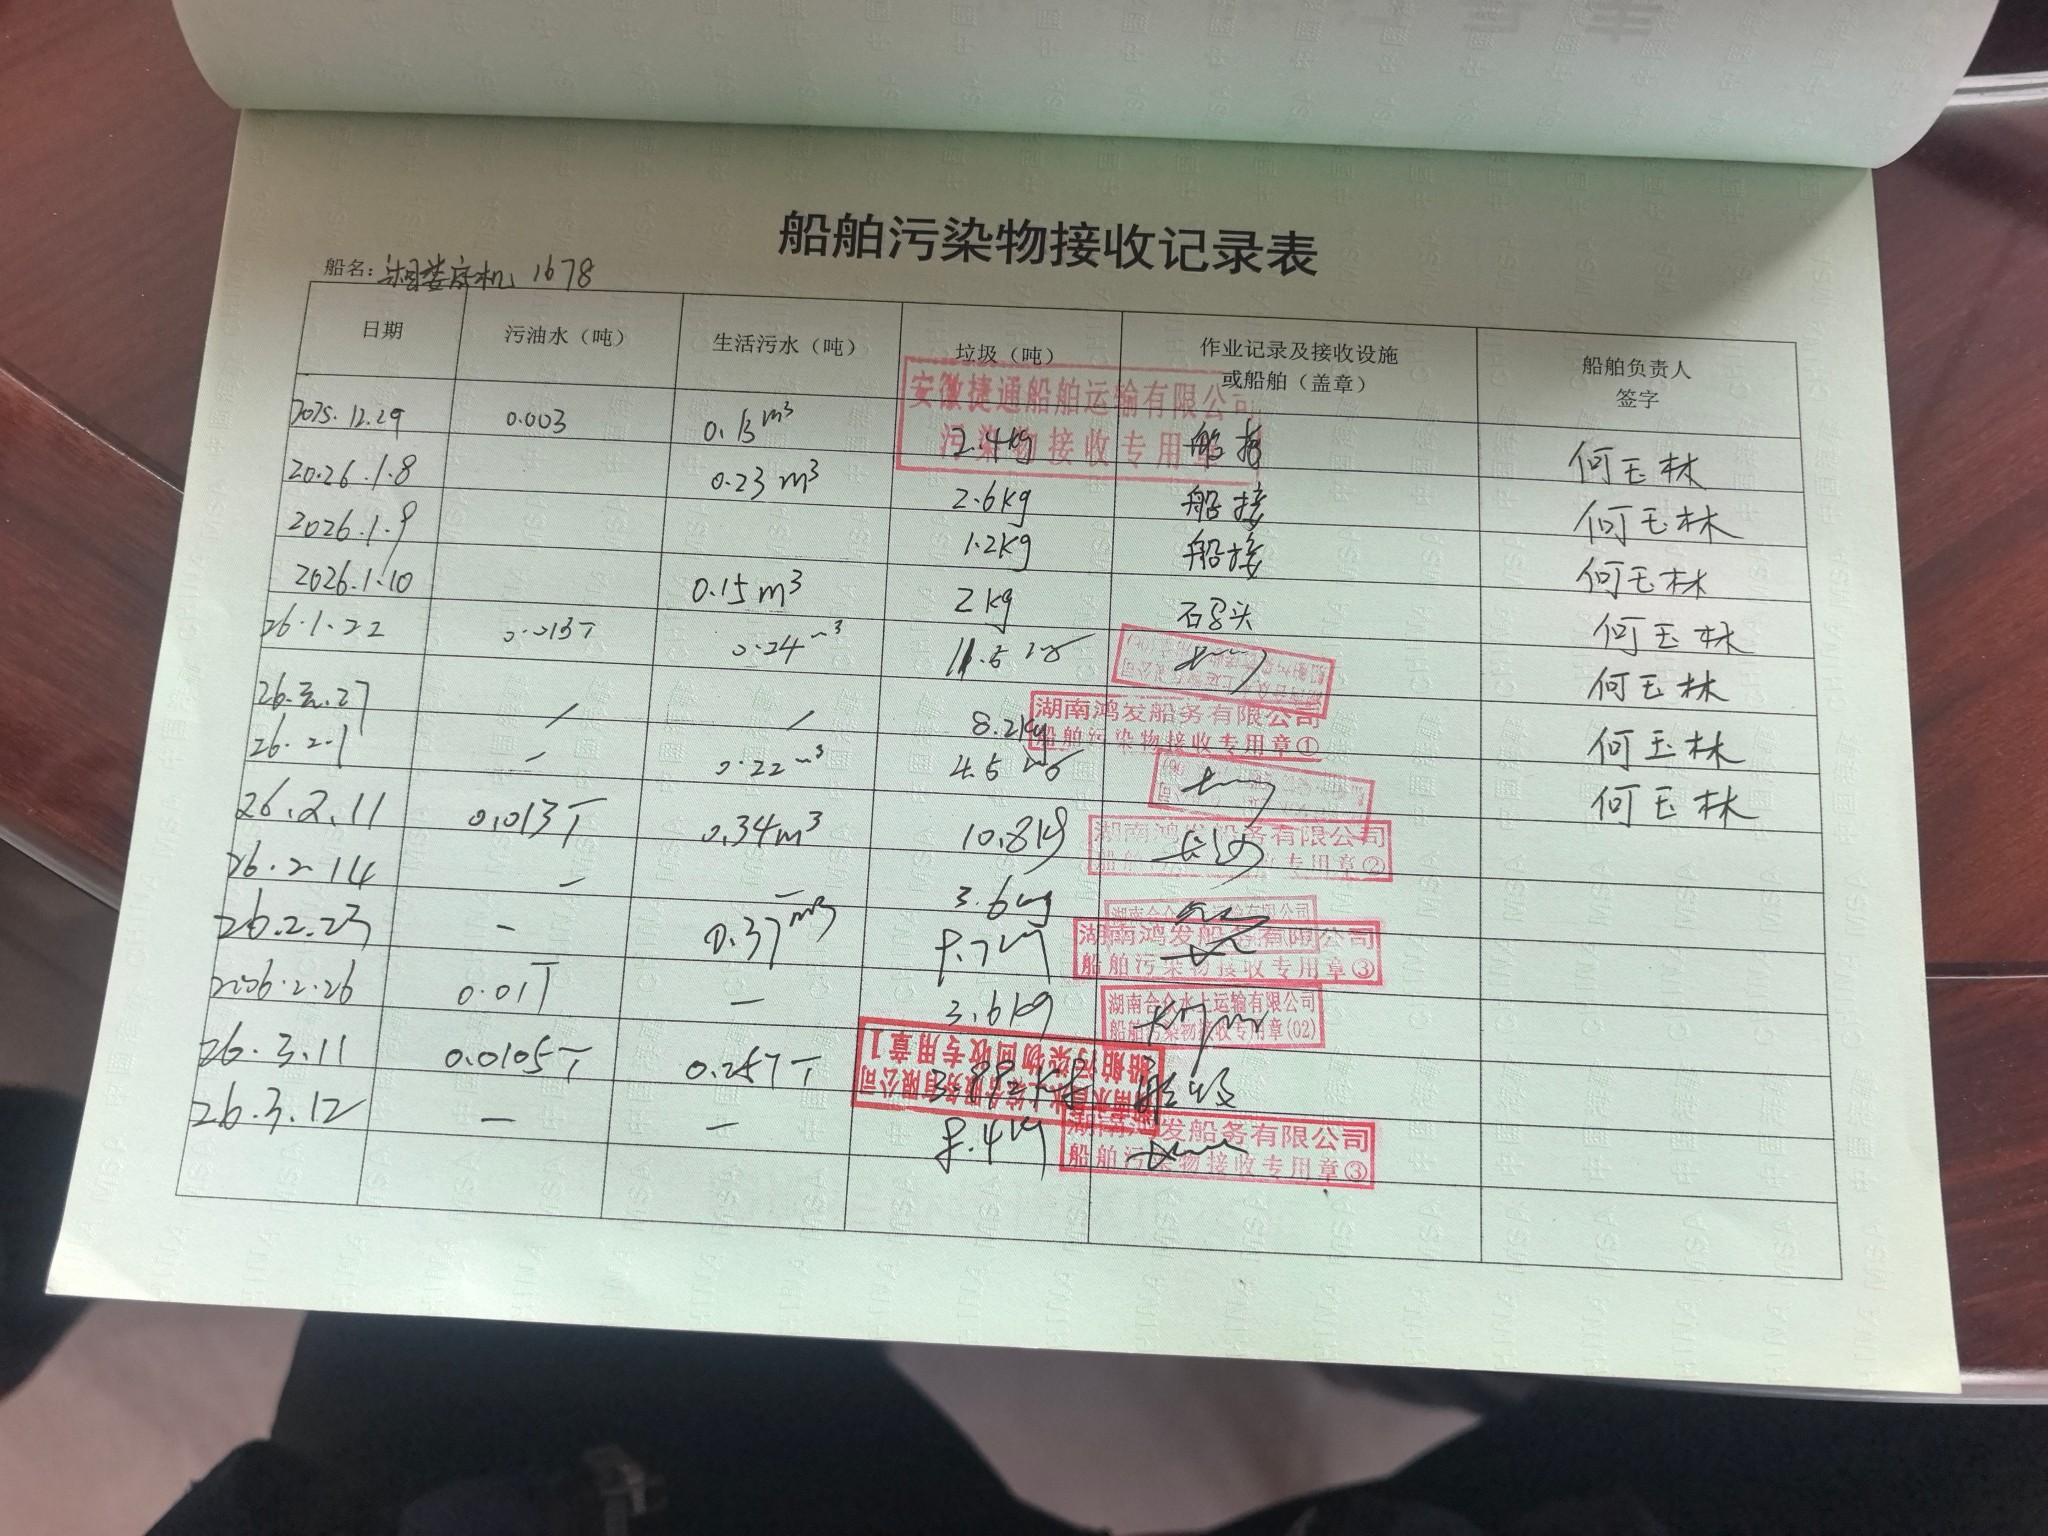 船舶污染物接收记录表
船名：湘娄底机 1678
日期 污油水（吨） 生活污水（吨） 垃圾（吨） 作业记录及接收设施或船舶（盖章） 船舶负责人签字
安徽捷通船舶运输有限公司
污染物接收专用章
2025.12.29 0.003 0.13m³ 2.4kg 船接 何玉林
2026.1.8 0.23m³ 2.6kg 船接 何玉林
2026.1.9 1.2kg 船接 何玉林
2026.1.10 0.15m³ 2kg 石码头 何玉林
26.1.22 0.013T 0.24m³ 11.5 何玉林
26. .27 / / 8.2kg 何玉林
湖南鸿发船务有限公司
船舶污染物接收专用章①
26.2.1 - 0.22m³ 4.5 何玉林
26.2.11 0.013T 0.34m³ 10.8kg 长沙
湖南鸿发船务有限公司
专用章②
26.2.14 - - 3.6kg
26.2.23 - 0.37m³ 9.7kg
湖南鸿发船务有限公司
船舶污染物接收专用章③
2026.2.26 0.01T - 3.6kg
湖南合众水上运输有限公司
船舶污染物接收专用章(02)
26.3.11 0.0105T 0.257T 船收
船舶污染物回收专用章1
26.3.12 - - 8.4kg
湖南鸿发船务有限公司
船舶污染物接收专用章③